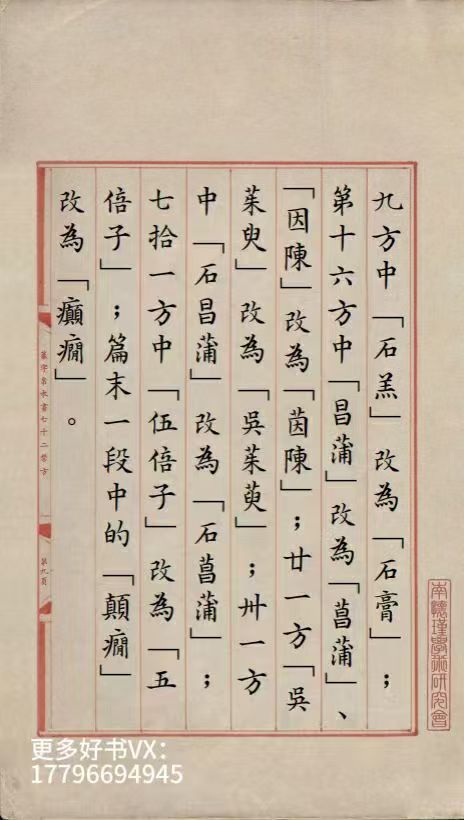 九方中「石羔」改為「石膏」；
第十六方中「昌蒲」改為「菖蒲」、
「因陳」改為「茵陳」；廿一方「吳
茱臾」改為「吳茱萸」；卅一方
中「石昌蒲」改為「石菖蒲」；
七拾一方中「伍倍子」改為「五
倍子」；篇末一段中的「顛癇」
改為「癲癇」。
第九頁
南懷瑾學術研究會
更多好书VX：
17796694945